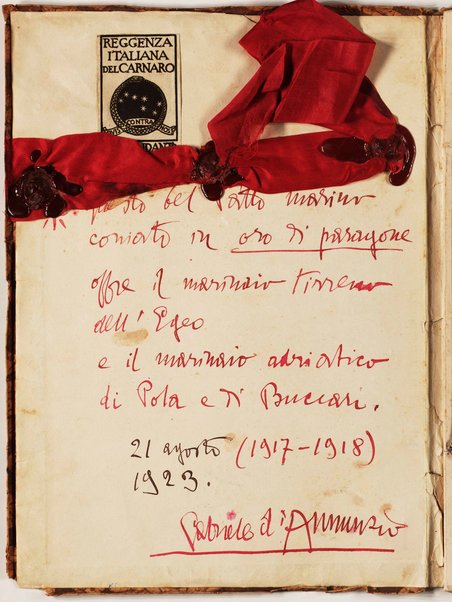 REGGENZA
ITALIANA
DEL CARNARO
CONTRA
questo bel Patto marino
coniato in oro di paragone
offre il marinaio tirreno
dell' Egeo
e il marinaio adriatico
di Pola e di Buccari.
21 agosto (1917-1918)
1923.
Gabriele d'Annunzio